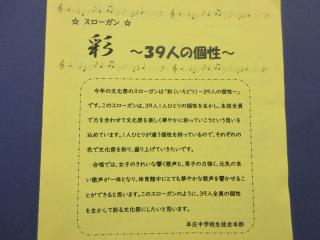 ☆ スローガン ☆
彩 ～39人の個性～
今年の文化祭のスローガンは『彩(いろどり)～39人の個性～』
です。このスローガンは、39人1人ひとりの個性を生かし、生徒全員
で力を合わせて文化祭を楽しく華やかに彩っていこうという思いを
込めています。1人ひとりが違う個性を持っているので、それぞれの
色で文化祭を彩り、盛り上げていきたいです。
合唱では、女子のきれいな響く歌声と、男子の力強く、元気の良
い歌声が一体となり、体育館中にとても華やかな歌声を響かせるこ
とができると思います。このスローガンのように、39人全員の個性
を生かして彩る文化祭にしたいと思います。
本庄中学校生徒会本部